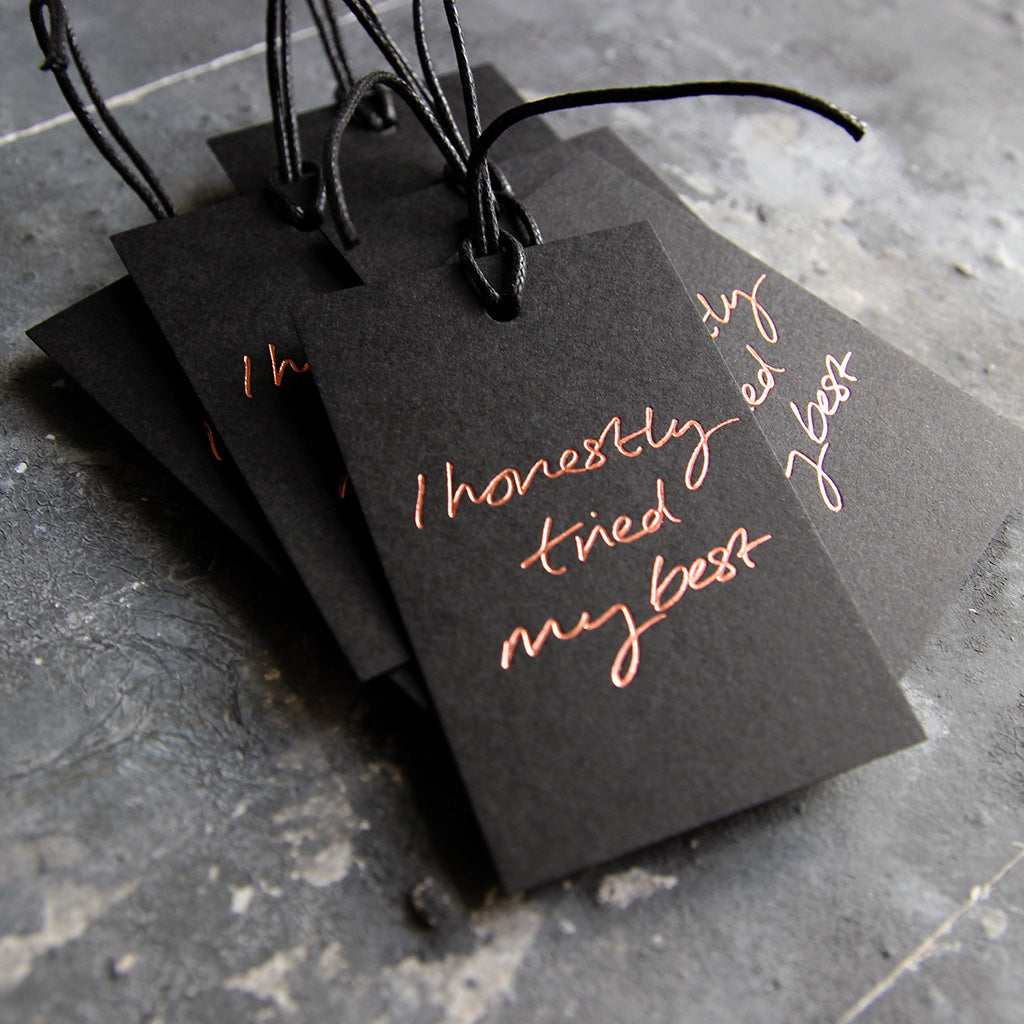 I honestly
tried
my best
I h
tly
ed
y best